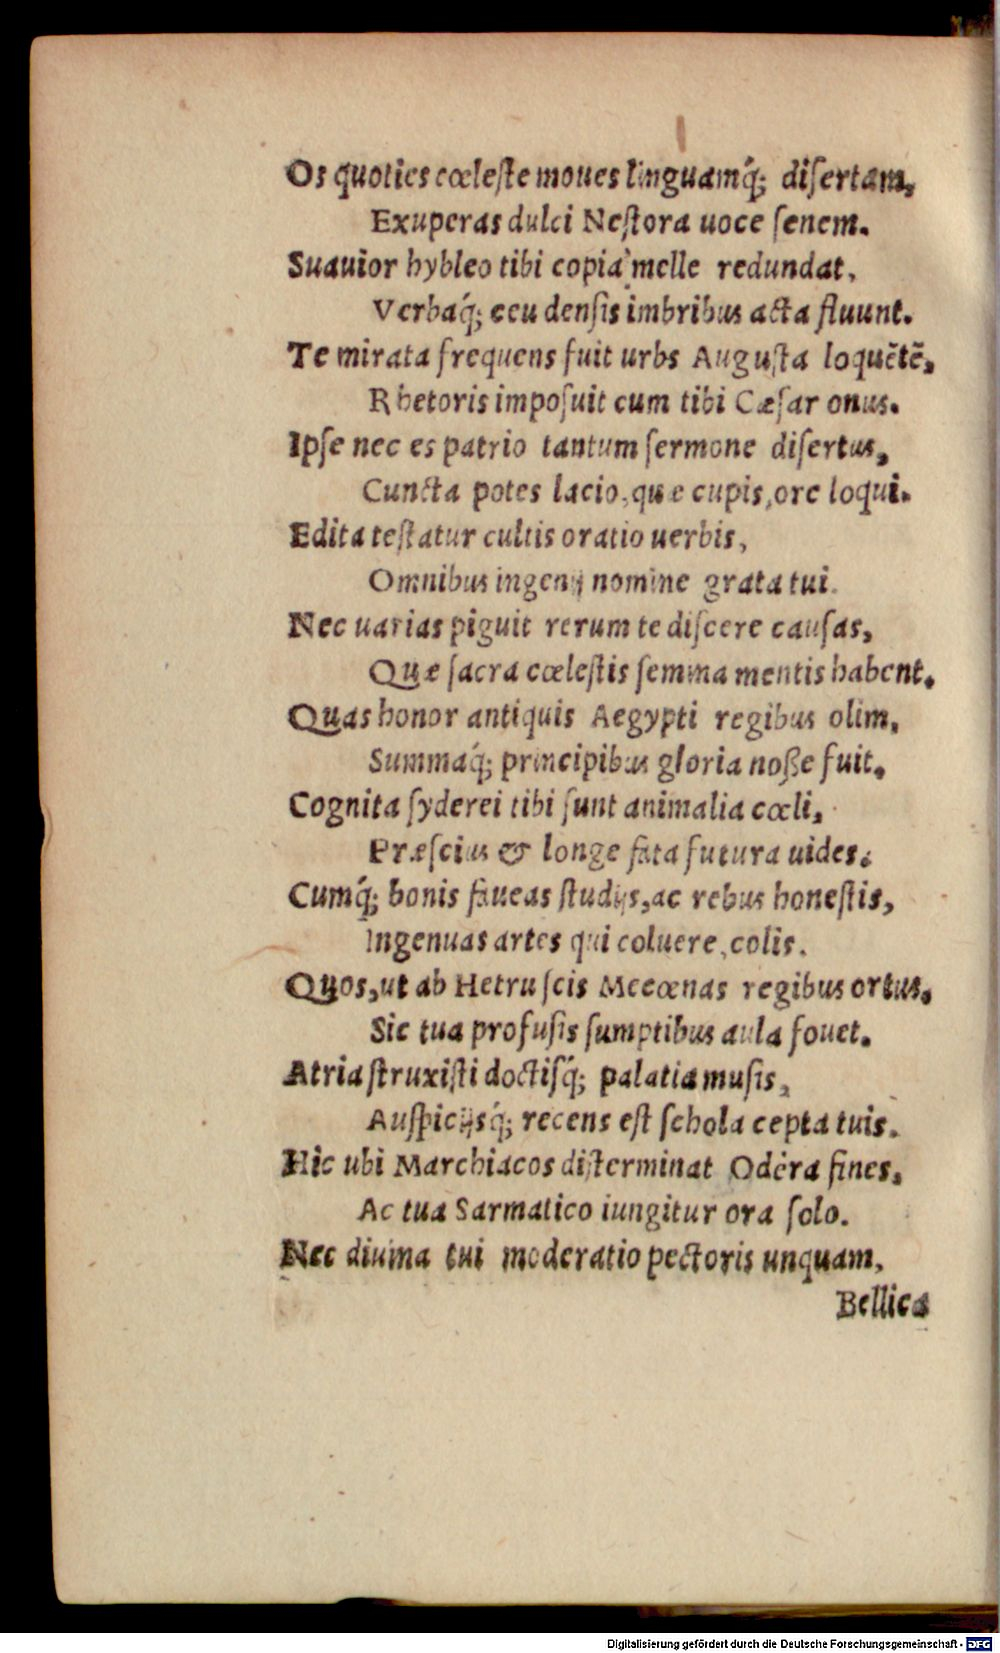 Os quoties cœleste moues linguamq́; disertam,
Exuperas dulci Nestora uoce senem.
Suauior hybleo tibi copia melle redundat,
Verbaq́; ceu densis imbribus acta fluunt.
Te mirata frequens fuit urbs Augusta loquētē,
Rhetoris imposuit cum tibi Cæsar onus.
Ipse nec es patrio tantum sermone disertus,
Cuncta potes lacio, quæ cupis, ore loqui.
Edita testatur cultis oratio uerbis,
Omnibus ingenij nomine grata tui.
Nec uarias piguit rerum te discere causas,
Quæ sacra cœlestis semina mentis habent.
Quas honor antiquis Aegypti regibus olim,
Summaq́; principibus gloria noße fuit.
Cognita syderei tibi sunt animalia cœli,
Præscius & longe fata futura uides.
Cumq́; bonis faueas studijs, ac rebus honestis,
Ingenuas artes qui coluere, colis.
Quos, ut ab Hetruscis Mecœnas regibus ortus,
Sic tua profusis sumptibus aula fouet.
Atria struxisti doctisq́; palatia musis,
Auspicijsq́; recens est schola cepta tuis.
Hic ubi Marchiacos disterminat Odera fines,
Ac tua Sarmatico iungitur ora solo.
Nec diuina tui moderatio pectoris unquam,
Bellica
Digitalisierung gefördert durch die Deutsche Forschungsgemeinschaft - DFG